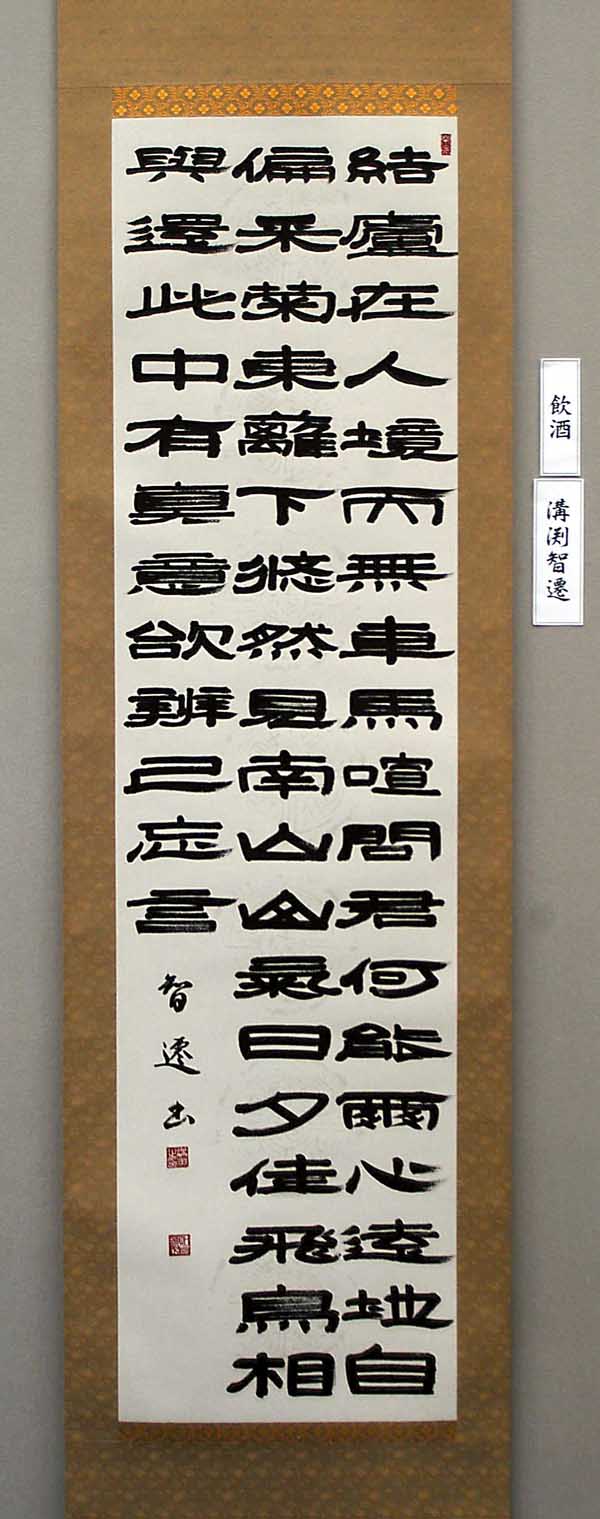 結廬在人境而無車馬喧問君何能爾心遠地自
偏采菊東籬下悠然見南山山氣日夕佳飛鳥相
與還此中有真意欲辨已忘言
智遷书
飲酒
溝渕智遷